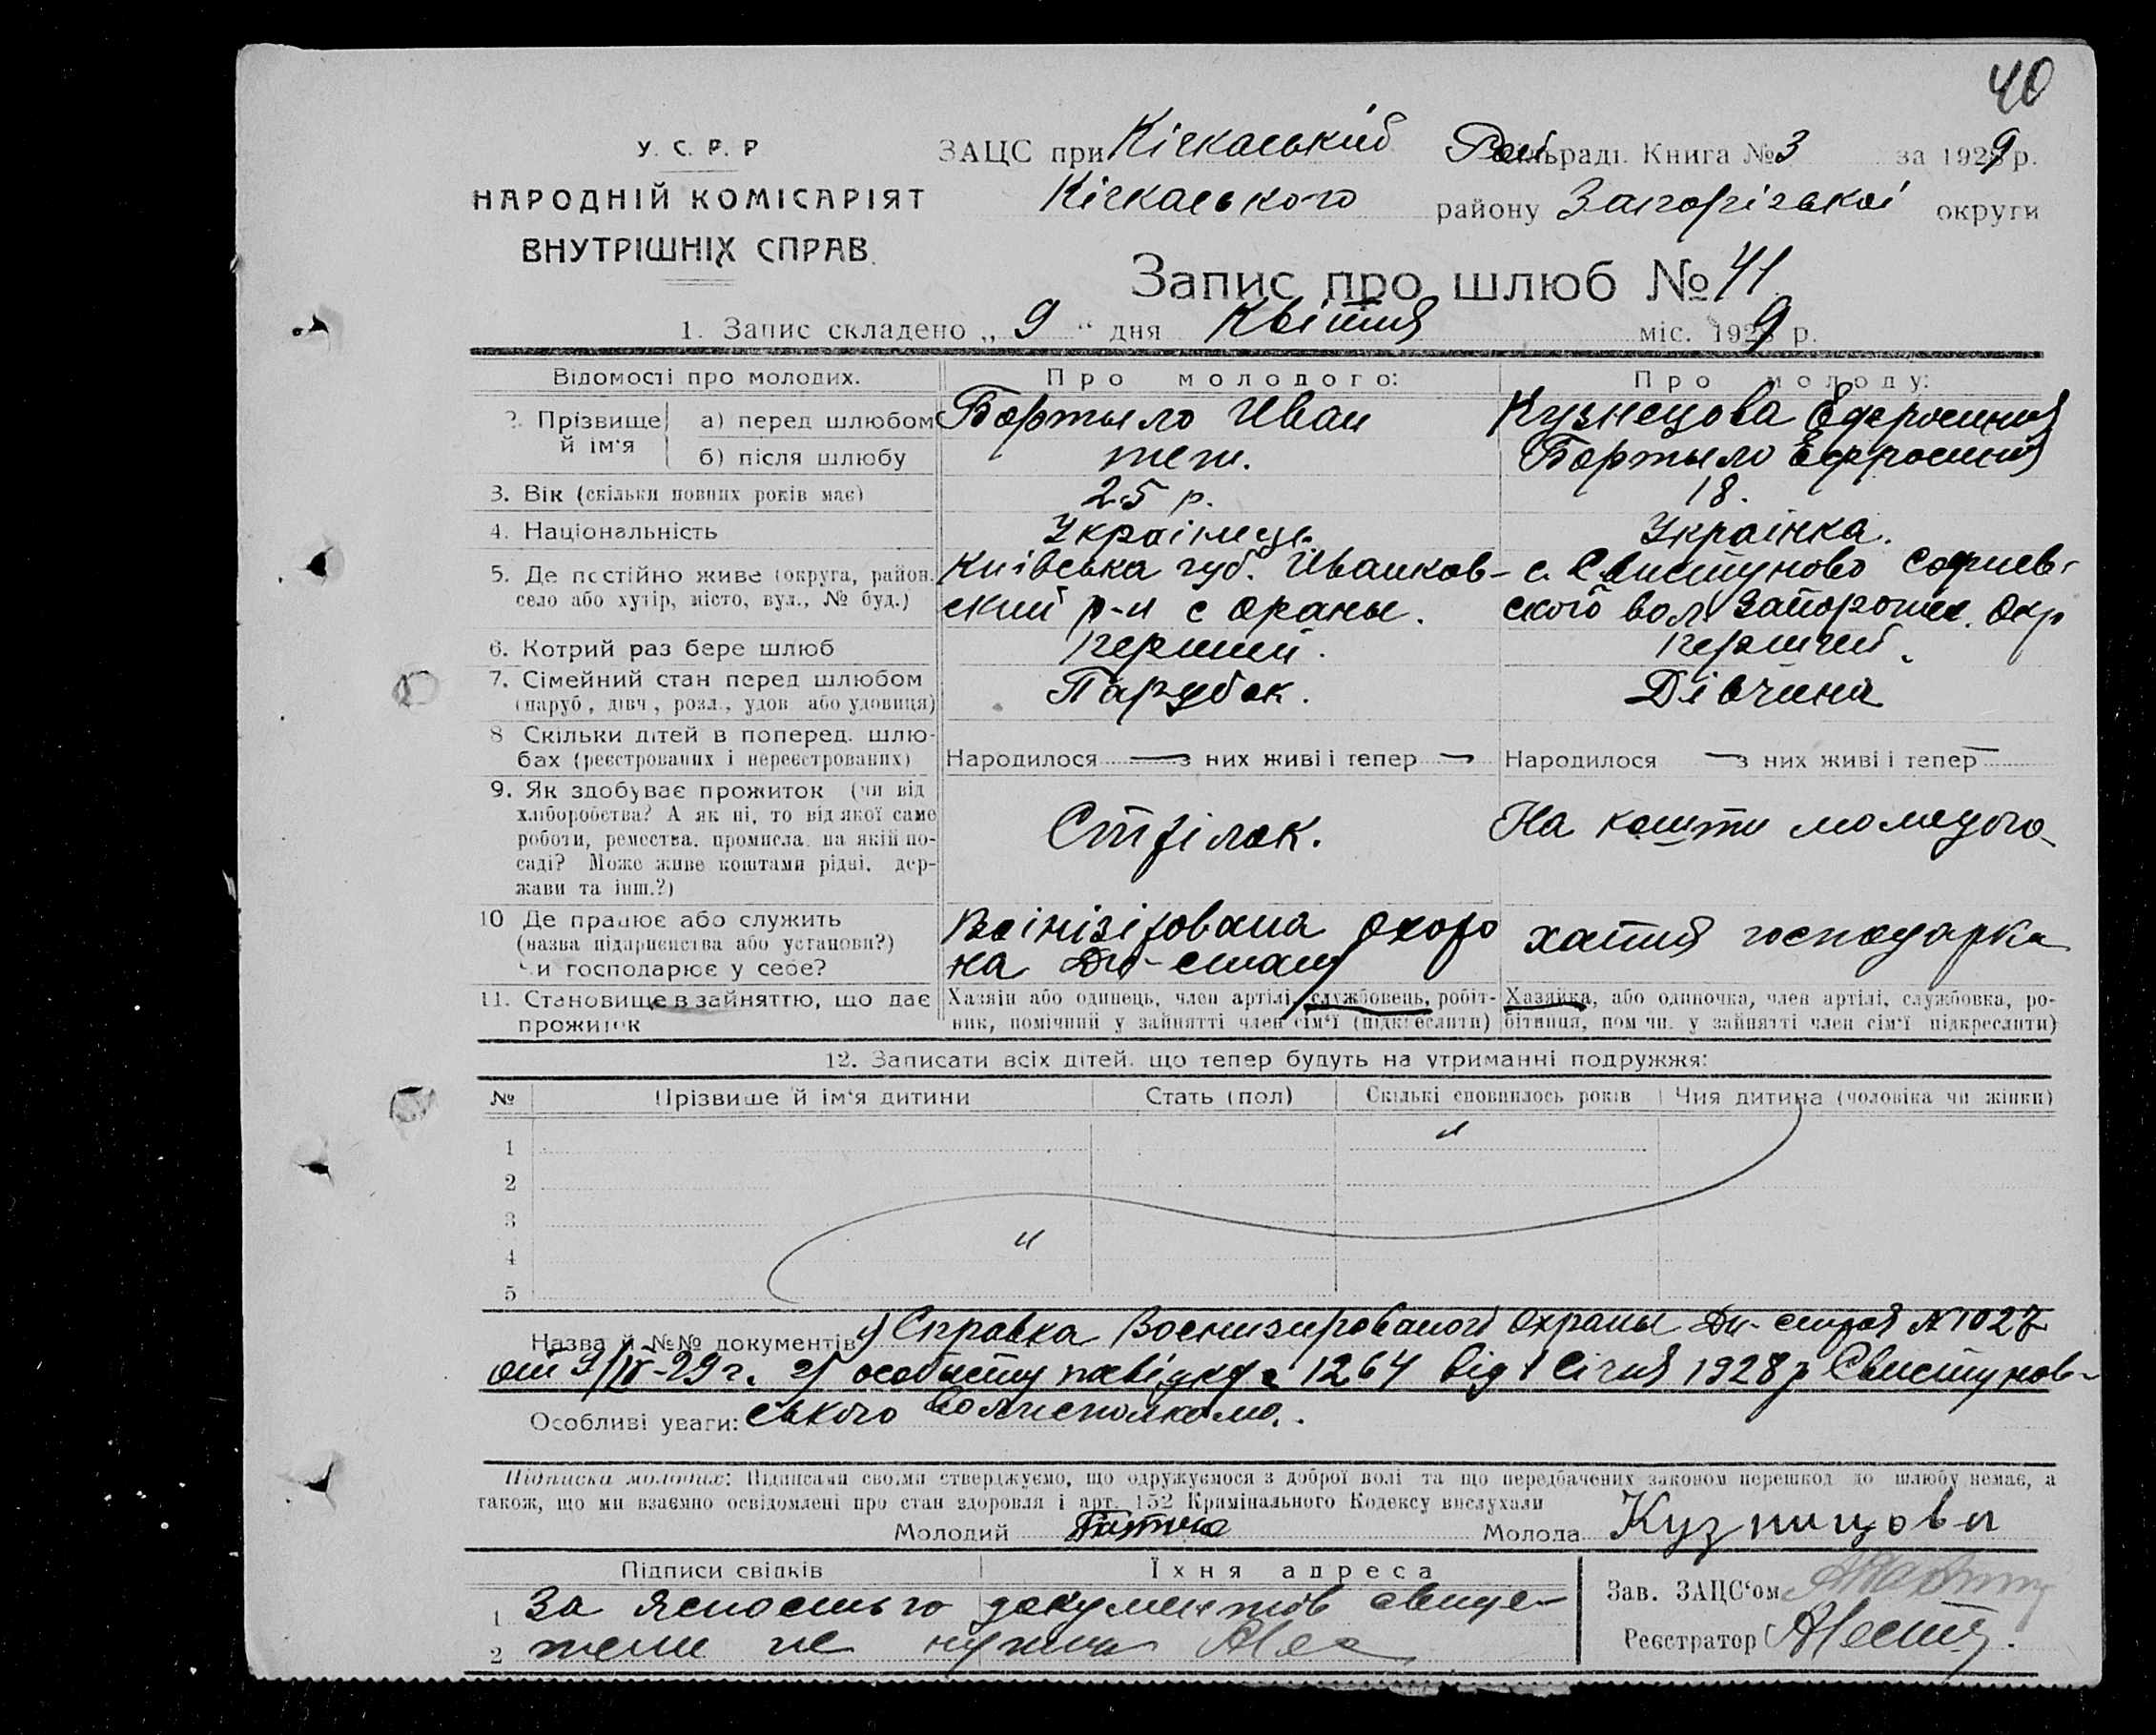 40
У. С. Р. Р
НАРОДНІЙ КОМІСАРІЯТ
ВНУТРІШНІХ СПРАВ.
ЗАЦС при Кічкаський Рай сільраді. Книга № 3 за 1929 р.
Кічкаського району Запорізької округи
Запис про шлюб № 41
1. Запис складено „ 9 “ дня Квітня міс. 1929 р.
Відомості про молодих. Про молодого: Про молоду:
2. Прізвище й ім‘я
а) перед шлюбом Бортыло Иван Кузнецова Ефросиния
б) після шлюбу теж. Бортыло Ефросиния
3. Вік (скільки повних років має) 25 р. 18.
4. Національність Українець Українка.
5. Де постійно живе (округа, район, Київська губ. Иванков- с. Свистуново Софиев-
село або хутір, місто, вул., № буд.) ский р-н с Ораны. ского вол Запорожск. Окр
6. Котрий раз бере шлюб перший. перший.
7. Сімейний стан перед шлюбом Парубок. Дівчина
(паруб, дівч, розл., удов або удовиця)
8 Скільки дітей в поперед. шлю-
бах (реєстрованих і нереєстрованих) Народилося — з них живі і тепер — Народилося — з них живі і тепер —
9. Як здобуває прожиток (чи від
хліборобства? А як ні, то від якої саме
роботи, ремества, промисла, на якій по- Стрілок. На кошти молодого
саді? Може живе коштами рідні, дер-
жави та інш.?)
10 Де працює або служить Воінізірована охоро хатня господарка
(назва підприємства або установи?) на
Чи господарює у себе?
11. Становище в зайняттю, що дає Хазяїн або одинець, член артілі, службовець, робіт- Хазяйка, або одиночка, член артілі, службовка, ро-
прожиток ник, помічний у зайнятті член сім‘ї (підкреслити) бітниця, пом чн. у зайнятті член сім‘ї підкреслити)
12. Записати всіх дітей, що тепер будуть на утриманні подружжя:
№ Прізвище й ім‘я дитини Стать (пол) Скількі сповнилось років Чия дитина (чоловіка чи жінки)
1 "
2
3
4 "
5
Назва й №№ документів 1) Справка Военизированой Охраны Дн-строя № 1027
от 9/IV-29 г. 2) особисту посвідку 1264 від 1 Січня 1928 р Свистунов-
Особливі уваги: ського Волисполкома.
Підписка молодих: Підписами своїми стверджуємо, що одружуємося з доброї волі та що передбачених законом перешкод до шлюбу немає, а
також, що ми взаємно освідомлені про стан здоровля і арт. 152 Кримінального Кодексу вислухали
Молодий Молода Кузницова
Підписи свідків Їхня адреса Зав. ЗАЦС‘ом
1 За ясностью документов свиде-
2 тели не нужны Реєстратор